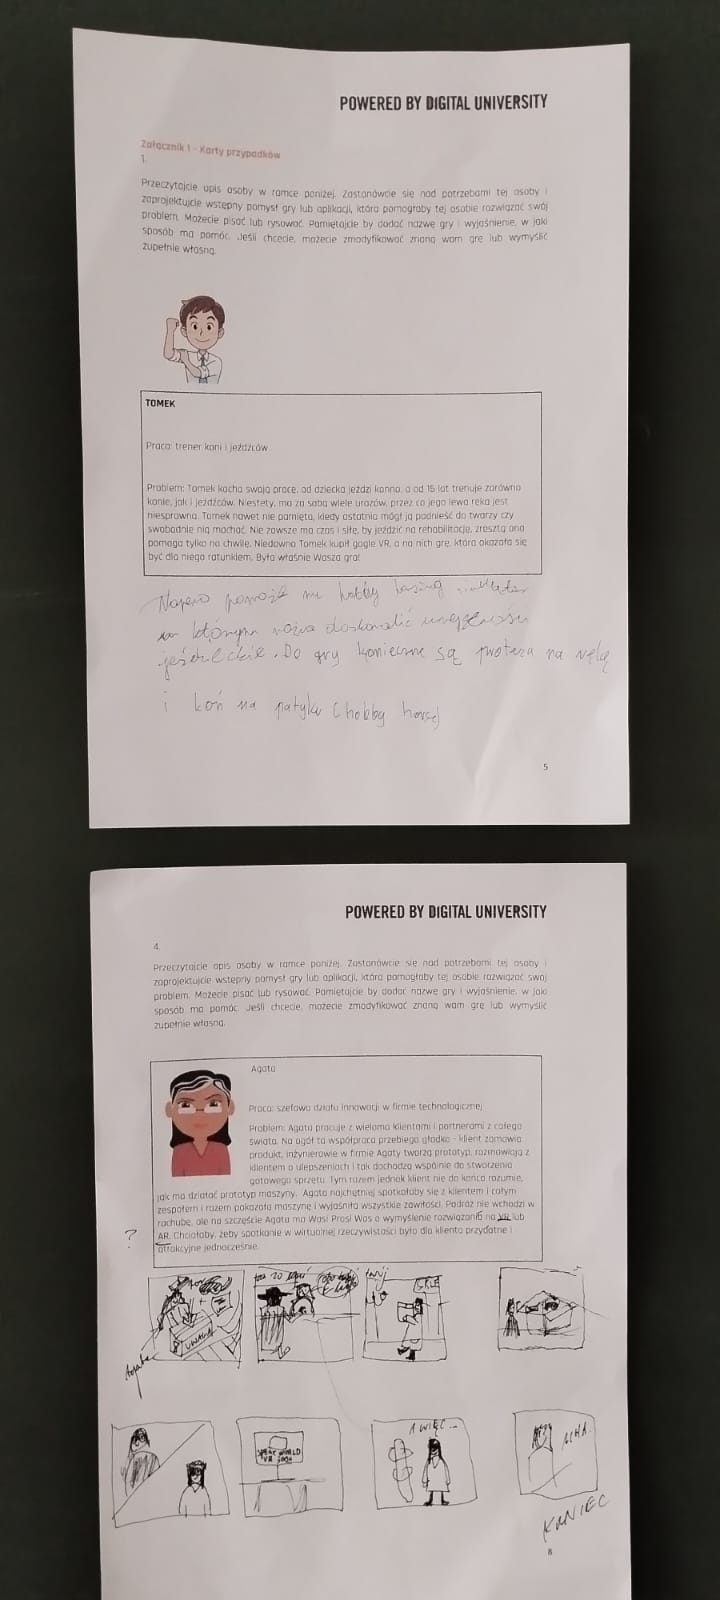 POWERED BY DIGITAL UNIVERSITY
Załącznik 1 - Karty przypadków
1.
Przeczytajcie opis osoby w ramce poniżej. Zastanówcie się nad potrzebami tej osoby i
zaprojektujcie wstępny pomysł gry lub aplikacji, która pomogłaby tej osobie rozwiązać swój
problem. Możecie pisać lub rysować. Pamiętajcie by dodać nazwę gry i wyjaśnienie, w jaki
sposób ma pomóc. Jeśli chcecie, możecie zmodyfikować znaną wam grę lub wymyślić
zupełnie własną.
TOMEK
Praca: trener koni i jeźdźców
Problem: Tomek kocha swoją pracę, od dziecka jeździ konno, a od 15 lat trenuje zarówno
konie, jak i jeźdźców. Niestety, ma za sobą wiele urazów, przez co jego lewa ręka jest
niesprawna. Tomek nawet nie pamięta, kiedy ostatnio mógł ją podnieść do twarzy czy
swobodnie nią machać. Nie zawsze ma czas i siłę, by jeździć na rehabilitację, zresztą ona
pomaga tylko na chwilę. Niedawno Tomek kupił gogle VR, a na nich grę, która okazała się
być dla niego ratunkiem. Była to właśnie Wasza gra!
pomoże mu hobby horsing
w którym można doskonalić umiejętności
jeździeckie. Do gry konieczne są proteza na rękę
i koń na patyku (hobby horse)
5
POWERED BY DIGITAL UNIVERSITY
4.
Przeczytajcie opis osoby w ramce poniżej. Zastanówcie się nad potrzebami tej osoby i
zaprojektujcie wstępny pomysł gry lub aplikacji, która pomogłaby tej osobie rozwiązać swój
problem. Możecie pisać lub rysować. Pamiętajcie by dodać nazwę gry i wyjaśnienie, w jaki
sposób ma pomóc. Jeśli chcecie, możecie zmodyfikować znaną wam grę lub wymyślić
zupełnie własną.
Agata
Praca: szefowa działu innowacji w firmie technologicznej
Problem: Agata pracuje z wieloma klientami i partnerami z całego
świata. Na ogół ta współpraca przebiega gładko - klient zamawia
produkt, inżynierowie w firmie Agaty tworzą prototyp, rozmawiają z
klientem o ulepszeniach i tak dochodzą wspólnie do stworzenia
gotowego sprzętu. Tym razem jednak klient nie do końca rozumie,
jak ma działać prototyp maszyny. Agata najchętniej spotkałaby się z klientem i całym
zespołem i razem pokazała maszynę i wyjaśniła wszystkie zawiłości. Podróż nie wchodzi w
rachubę, ale na szczęście Agata ma Was! Prosi Was o wymyślenie rozwiązania na VR lub
AR. Chciałaby, żeby spotkanie w wirtualnej rzeczywistości było dla klienta przydatne i
atrakcyjne jednocześnie.
?
Agata
A WIĘC...
AHA.
KONIEC
8